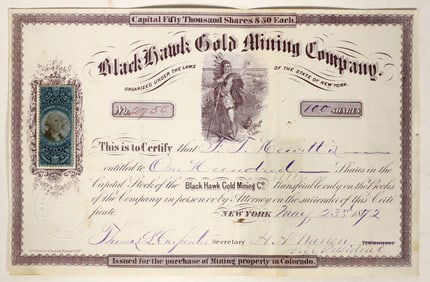 Capital Fifty Thousand Shares $50 Each.
Black Hawk Gold Mining Company.
ORGANIZED UNDER THE LAWS OF THE STATE OF NEW YORK.
No. 2750 100 SHARES
This is to Certify that F. T. Hewitt is
entitled to One Hundred Shares in the
Capital Stock of the Black Hawk Gold Mining Co. Transferable only on the Books
of the Company in person or by Attorney on the surrender of this Certi
ficate NEW YORK May 23d 1872
Thomas L Carpenter Secretary H. H. Warren
Vice President
Issued for the purchase of Mining property in Colorado.